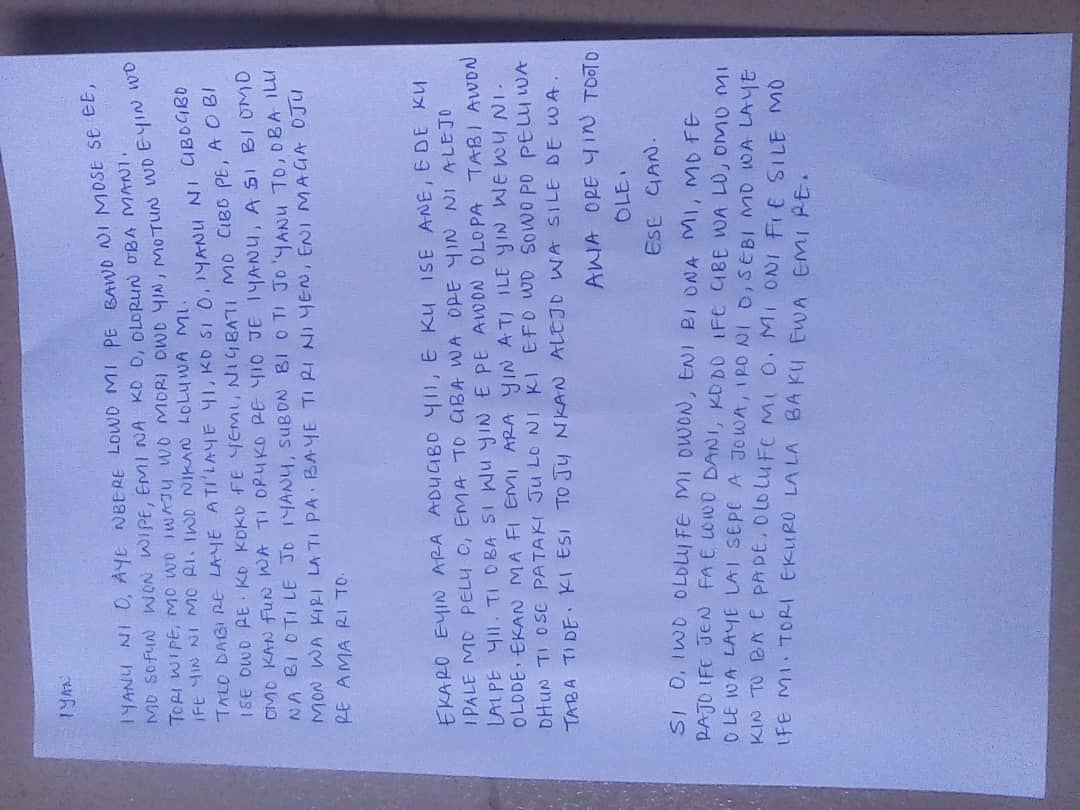 IYAN
IYANU NI O, AYE NBERE LOWO MI PE BAWO NI MOSE SE EE,
MO SOFUN WON WIPE, EMI NA KO O, OLORUN OBA MANI.
TORI WIPE, MO WO IWAJU WO MORI OWO YIN, MOTUN WO EYIN WO
IFE YIN NI MO RI. IWO NIKAN LOLUWA MI.
TALO DABI RE LAYE ATI'LAYE YI, KO SI O, IYANU NI GBOGBO
ISE OWO RE. KO KOKO FE YEMI, NIGBATI MO GBO PE, A O BI
OMO KAN FUN WA TI ORUKO RE YIO JE IYANU, A SI BI OMO
NA BI OTI LE JO IYANU, SUBON BI O TI JO 'YANU TO, OBA ILU
MON WA KIRI LATI PA. BAYE TI RI NI YEN, ENI MAGA OJU
RE AMA RI TO.
EKARO EYIN ARA ADUGBO YII, E KU ISE ANE, EDE KU
IPALE MO PELU O, EMA TO GBA WA ORE YIN NI ALEJO
LAIPE YII. TI OBA SI WU YIN E PE AWON OLOPA TABI AWON
OLODE. EKAN MA FI EMI ARA YIN ATI ILE YIN WEWU NI.
OHUN TI OSE PATAKI JU LO NI KI EFO WO SOWOPO PELU WA
TABA TIDE. KI ESI TOJU NKAN ALEJO WA SILE DE WA.
AWA ORE YIN TOOTO
OLE.
ESE GAN.
SI O, IWO OLOLUFE MI OWON, ENI BI ONA MI, MO FE
RAJO IFE JEN FA E LOWO DANI, KODO IFE GBE WA LO, OMO MI
O LE WA LAYE LAI SEPE A JOWA, IRO NI O, SEBI MO WA LAYE
KIN TO BA E PADE. OLOLUFE MI O. MI ONI FI E SILE MO
IFE MI. TORI EKURO LALA BAKU EWA EMI RE.